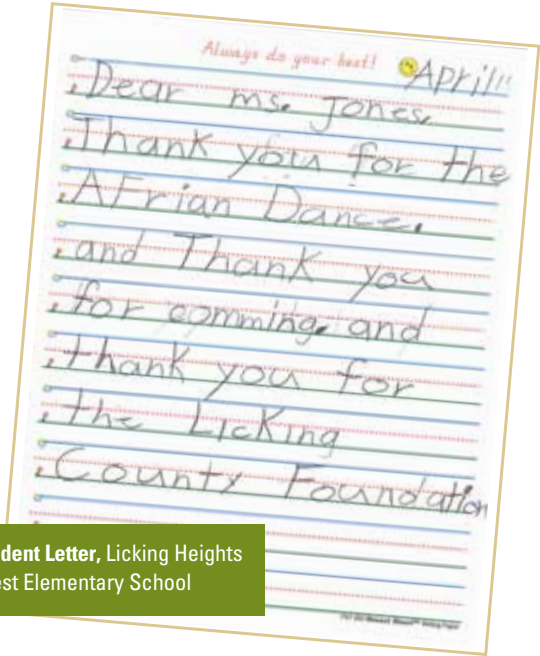 Always do your best!
April 11
Dear ms. Jones.
Thank you for the
AFrian Dance.
and Thank you
for comming. and
thank you for
the Licking
County Foundation
dent Letter, Licking Heights
est Elementary School